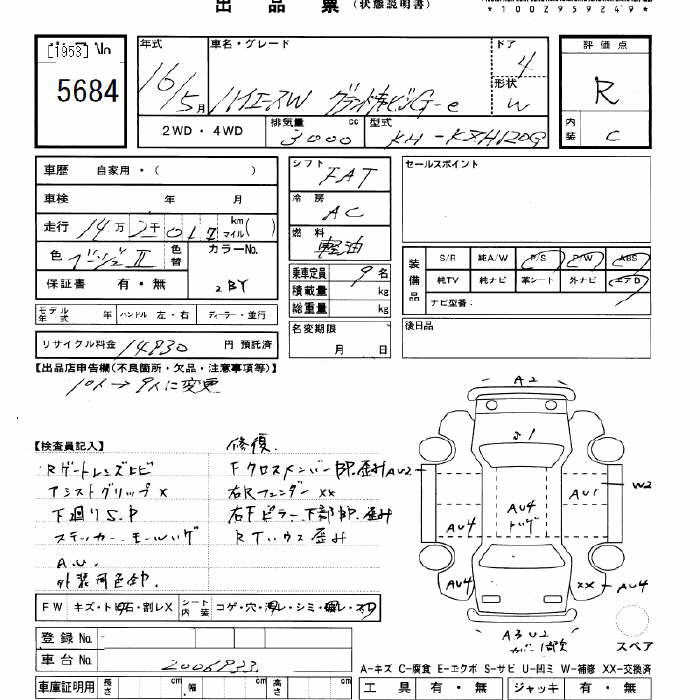 出品票(状態説明書)
*1002959249*
[1953] No
5684
年式 車名・グレード ドア 4
16/5月 ハイエースW グランドキャビンG-e 形状 W
評価点 R
内装 C
2WD・4WD 排気量 3000 cc 型式 KH-KZH120G
車歴 自家用・( )
車検 年 月
走行 14万2千017 km マイル( )
色 ベージュII 色替 カラーNo. 2BY
保証書 有・無
シフト FAT
冷房 AC
燃料 軽油
乗車定員 9名
積載量 kg
総重量 kg
セールスポイント
装備品 S/R 純A/W P/S P/W ABS
純TV 純ナビ 革シート 外ナビ エアB
ナビ型番:
モデル年式 年 ハンドル 左・右 ディーラー・並行
名変期限 月 日
後日品
リサイクル料金 14830 円 預託済
【出品店申告欄(不良箇所・欠品・注意事項等)】
10人→9人に変更
【検査員記入】 修復
Rゲートレンズヒビ Fクロスメンバー部P.歪み
アシストグリップX 右Rフェンダー XX
下廻りS.P 右Fピラー下部P.歪み
ステッカー.モールハゲ RTハウス歪み
A.U.
外装同色P.
A2
AU2
W2
AU1
AU4
AU4
AU4
AU4
XX-AU4
A3U2
スペア
FW キズ・ト石・割レX シート内装 コゲ・穴・汚レ・シミ・スレ
登録No.
車台No. 2006933
車庫証明用 長さ cm 幅 cm 高さ cm
A-キズ C-腐食 E-エクボ S-サビ U-凹ミ W-補修 XX-交換済
工具 有・無 ジャッキ 有・無